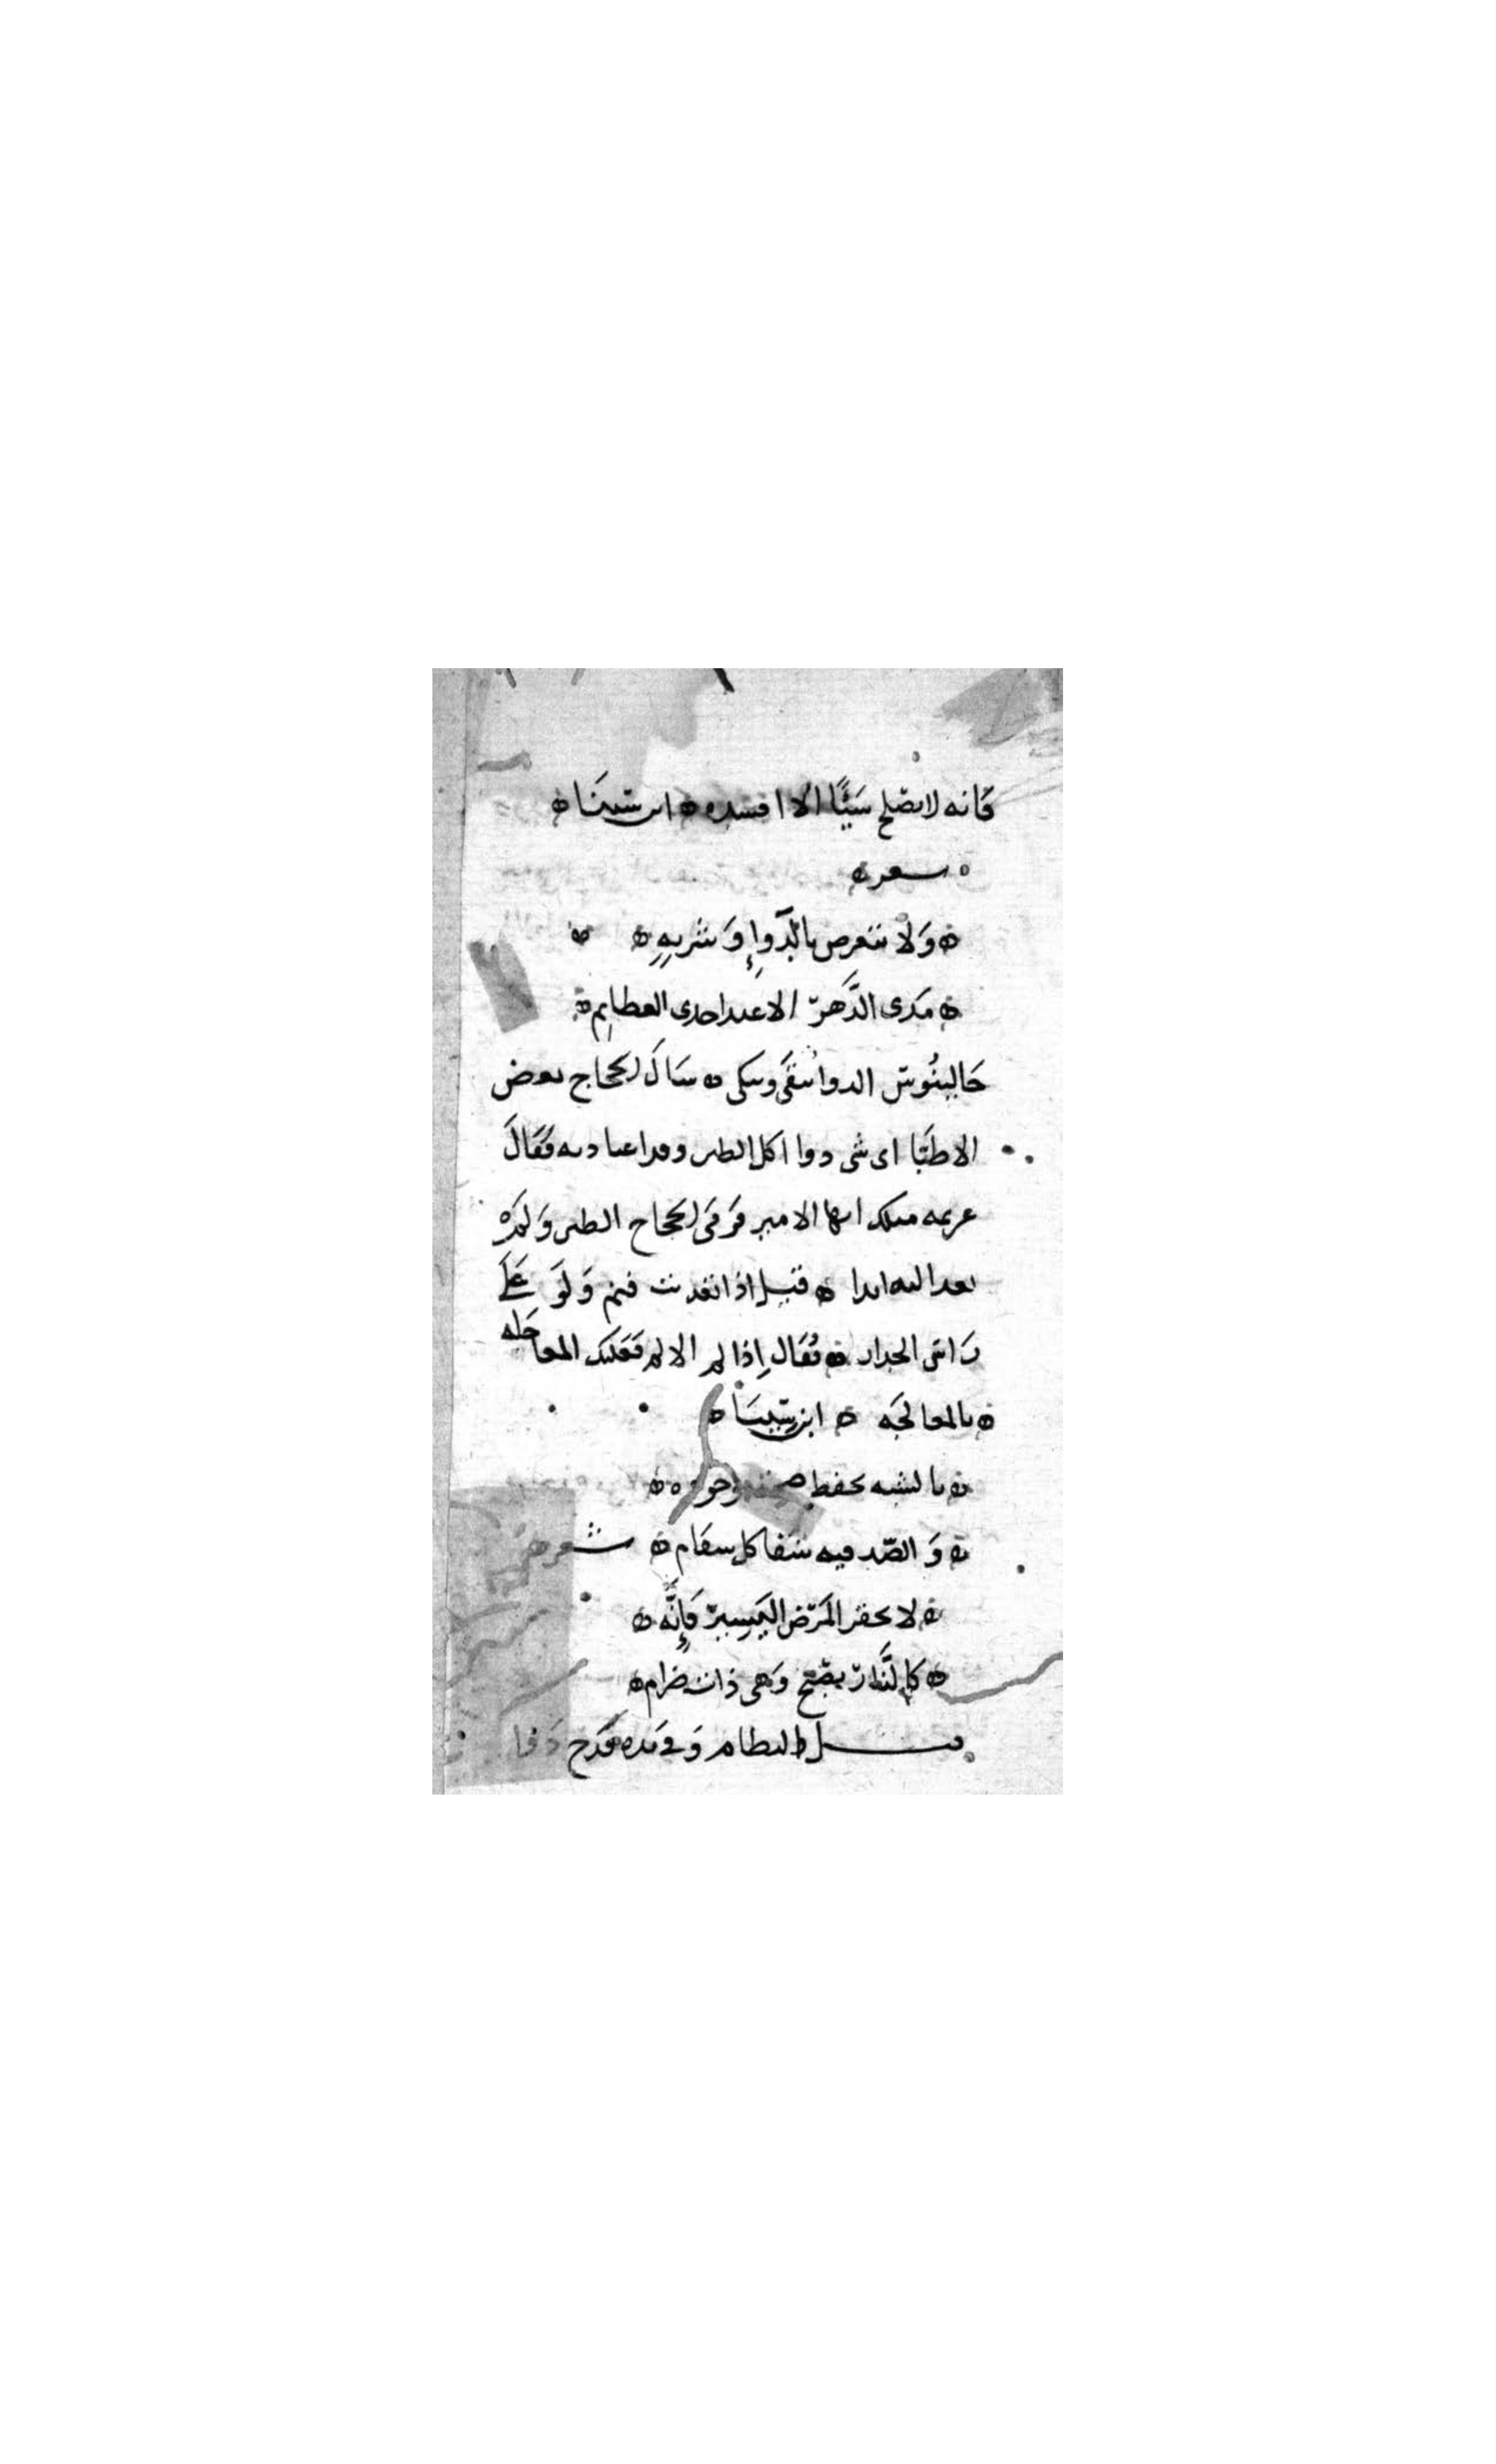 فانه لا يصلح شيًا الا افسده ابن سينا
شعر
وَلا تتعرض بالدّواءِ وَشربهِ
مَدى الدَّهر الا عند احدى العظايم
جَالينُوس الدوا ينقى وينكى سَال الحجاج بعض
الاطبَّا اى شى دوا اكل الطين وقد اعتاد به فقَالَ
عزيمه مثلك ايها الامير فرَمَى الحجاج الطين وَلم
يعد اليه ابدا قيل اذا تغديت فنم وَلَو عَلَى
رَاس الجدار فقَال اِذا لم الالم فَعَليك المعاجله
بالمعالجَه ابن سينَا
بالشبه تحفظ
وَ الضّد فيه شفا كل سقَام شعر
لا تحقر المَرَض اليَسِير فَاِنَّه
كالنَّار يصبح وَهى ذات ضرام
النظام وَفى يده قدَح دَوا